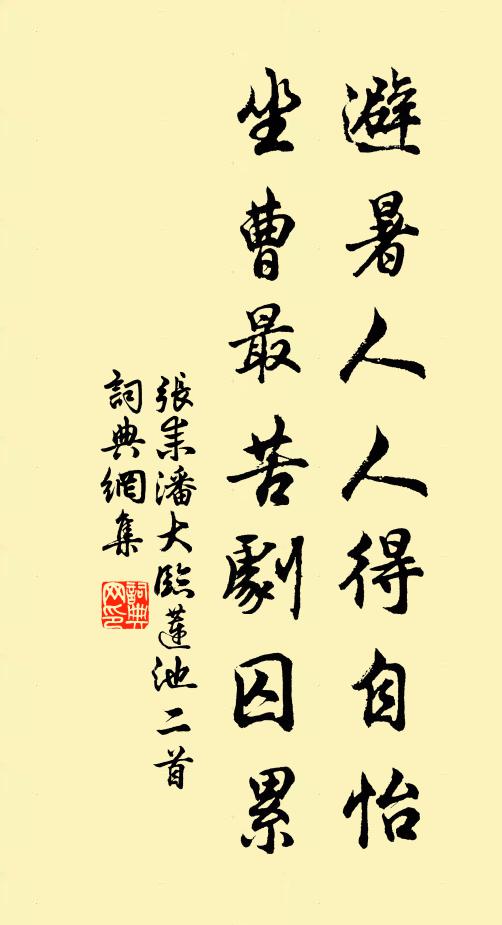 避暑人人得自怡
坐曹最苦劇囚累
張耒潘大臨蓮池二首
詞典網集
詞典
网印